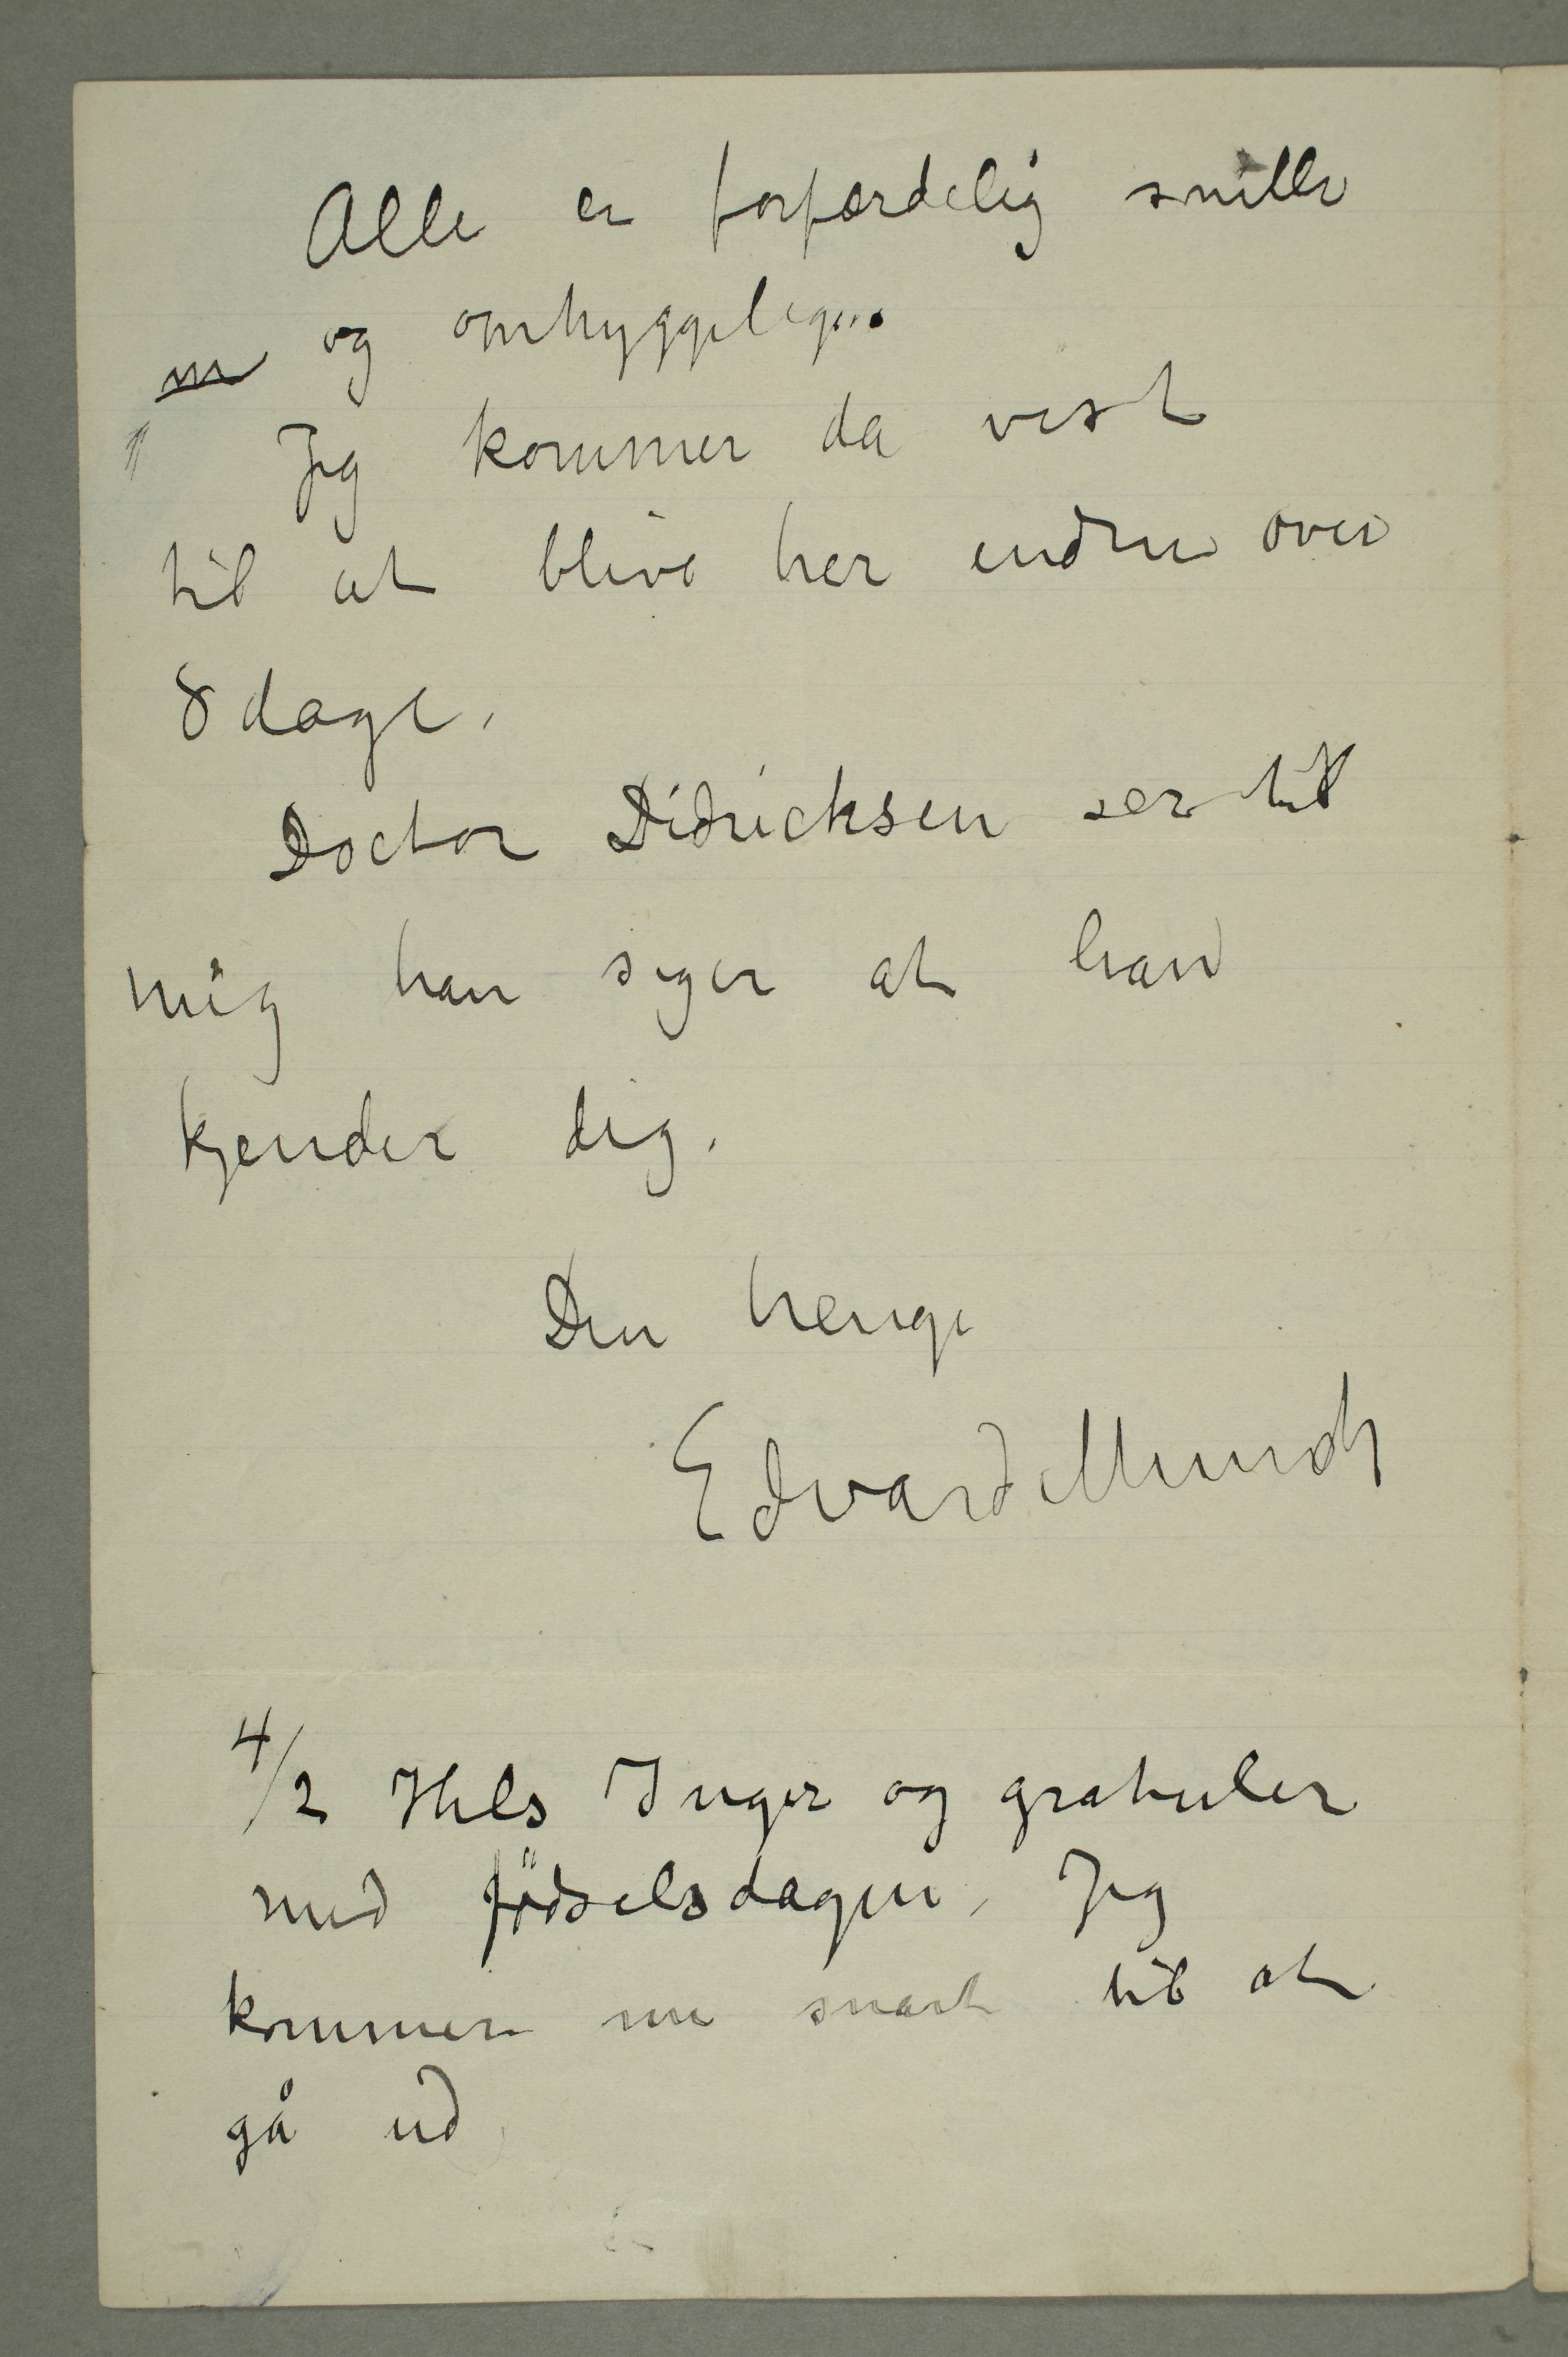 Alle er forfærdelig snille
og omhyggelige..
Jeg kommer da vist
til at blive her endnu over
8 dage.
Doctor Didricksen ser til
mig han siger at han
kjender dig.
Din hengi
Edvard Munch
4/2 Hils Inger og gratuler
med födselsdagen. Jeg
kommer nu snart til at
gå ud